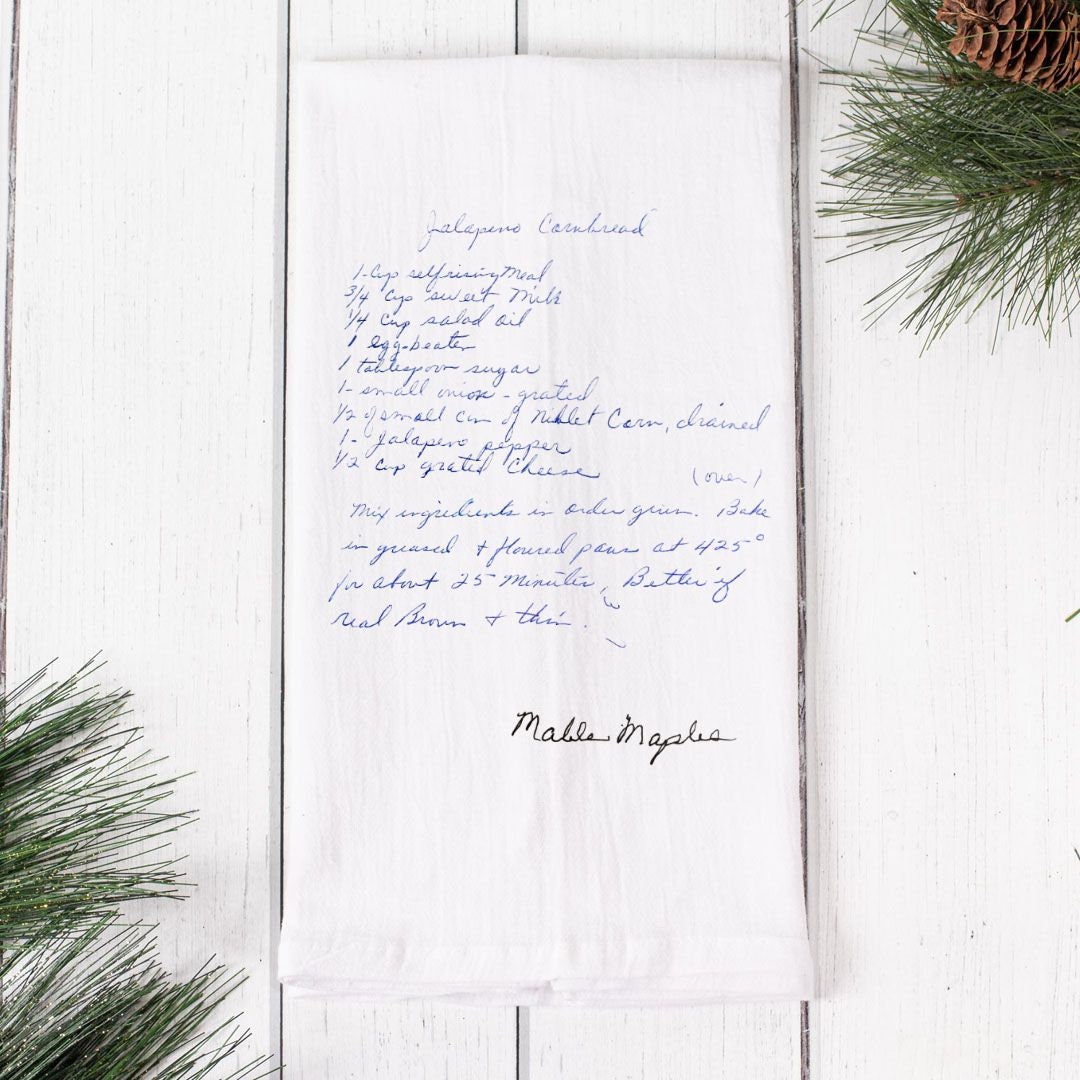 Jalapeno Cornbread
1-Cup selfrising Meal
3/4 Cup sweet Milk
1/4 Cup salad oil
1 egg-beaten
1 tablespoon sugar
1- small onion - grated
1/2 of small can of Niblet Corn, drained
1- Jalapeno pepper
1/2 cup grated Cheese (over)
Mix ingredients in order given. Bake
in greased + floured pans at 425°
for about 25 Minutes, Better if
real Brown + thin.
Mable Maples